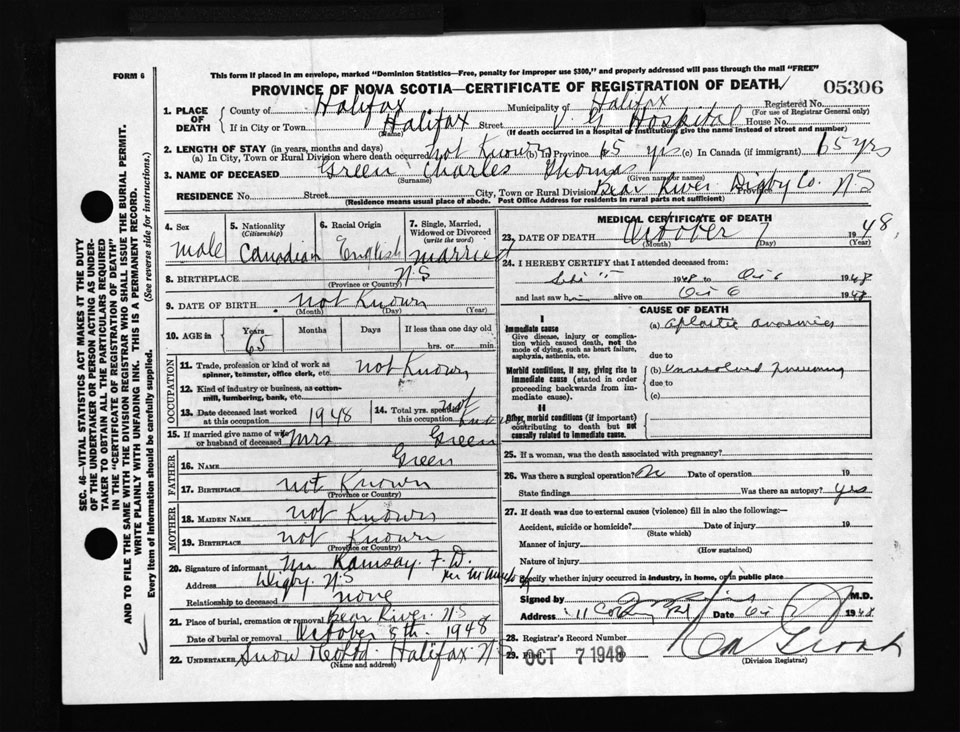 FORM 6
This form if placed in an envelope, marked "Dominion Statistics—Free, penalty for improper use $300," and properly addressed will pass through the mail "FREE"
PROVINCE OF NOVA SCOTIA—CERTIFICATE OF REGISTRATION OF DEATH 05306
1. PLACE OF DEATH County of Halifax Municipality of Halifax Registered No.
(For use of Registrar General only)
If in City or Town Halifax Street V. G Hospital House No.
(Name) (If death occurred in a Hospital or Institution, give the name instead of street and number)
2. LENGTH OF STAY (in years, months and days)
(a) In City, Town or Rural Division where death occurred not Known (b) In Province 65 yrs (c) In Canada (if immigrant) 65 yrs
3. NAME OF DECEASED Green Charles Thomas
(Surname) (Given name or names)
RESIDENCE No. Street City, Town or Rural Division Bear River Digby Co. Province N.S
(Residence means usual place of abode. Post Office Address for residents in rural parts not sufficient)
4. Sex male
5. Nationality (Citizenship) Canadian
6. Racial Origin English
7. Single, Married, Widowed or Divorced (write the word) married
8. BIRTHPLACE N.S
(Province or Country)
9. DATE OF BIRTH not Known
(Month) (Day) (Year)
10. AGE in Years 65 Months Days If less than one day old
hrs. or min
OCCUPATION
11. Trade, profession or kind of work as spinner, teamster, office clerk, etc. not Known
12. Kind of industry or business, as cotton-mill, lumbering, bank, etc.
13. Date deceased last worked at this occupation 1948
14. Total yrs. spent in this occupation not Known
15. If married give name of wife or husband of deceased Mrs Green
FATHER
16. NAME Green
17. BIRTHPLACE not Known
(Province or Country)
MOTHER
18. MAIDEN NAME not Known
19. BIRTHPLACE not Known
(Province or Country)
20. Signature of informant Ramsay F. D.
Address Digby N.S
Relationship to deceased none
21. Place of burial, cremation or removal Bear River N.S
Date of burial or removal October 8th 1948
22. UNDERTAKER Snow Halifax N.S
(Name and address)
MEDICAL CERTIFICATE OF DEATH
23. DATE OF DEATH October 7 1948
(Month) (Day) (Year)
24. I HEREBY CERTIFY that I attended deceased from:
1948 to Oct 6 1948
and last saw him alive on Oct 6 1948
CAUSE OF DEATH
I
Immediate cause
Give disease, injury or complication which caused death, not the mode of dying, such as heart failure, asphyxia, asthenia, etc.
(a) aplastic anaemia
due to
Morbid conditions, if any, giving rise to immediate cause (stated in order proceeding backwards from immediate cause).
(b) Unresolved pneumonia
due to
(c)
II
Other morbid conditions (if important) contributing to death but not causally related to immediate cause.
25. If a woman, was the death associated with pregnancy?
26. Was there a surgical operation No Date of operation 19
State findings Was there an autopsy? Yes
27. If death was due to external causes (violence) fill in also the following:—
Accident, suicide or homicide? Date of injury 19
(State which)
Manner of injury
(How sustained)
Nature of injury
Specify whether injury occurred in industry, in home, or in public place
Signed by M.D.
Address Date Oct 7 1948
28. Registrar's Record Number
29. Filed OCT 7 1948 19
(Division Registrar)
SEC. 46—VITAL STATISTICS ACT MAKES IT THE DUTY
OF THE UNDERTAKER OR PERSON ACTING AS UNDER-
TAKER TO OBTAIN ALL THE PARTICULARS REQUIRED
IN THE "CERTIFICATE OF REGISTRATION OF DEATH"
AND TO FILE THE SAME WITH THE DIVISION REGISTRAR WHO SHALL ISSUE THE BURIAL PERMIT.
WRITE PLAINLY WITH UNFADING INK. THIS IS A PERMANENT RECORD.
Every item of Information should be carefully supplied. (See reverse side for instructions.)